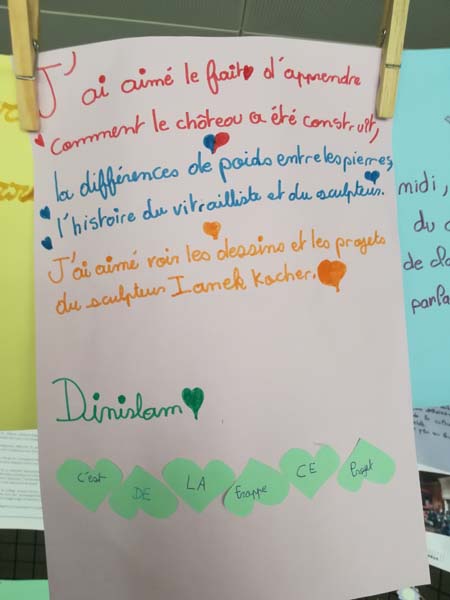 J'ai aimé le fait d'apprendre
comment le château a été construit,
la différences de poids entre les pierres,
l'histoire du vitrailliste et du sculpteur.
J'ai aimé voir les dessins et les projets
du sculpteur Ianek Kocher.
Dinislam
c'est DE LA frappe CE Projet
midi,
du
de cla
panfa